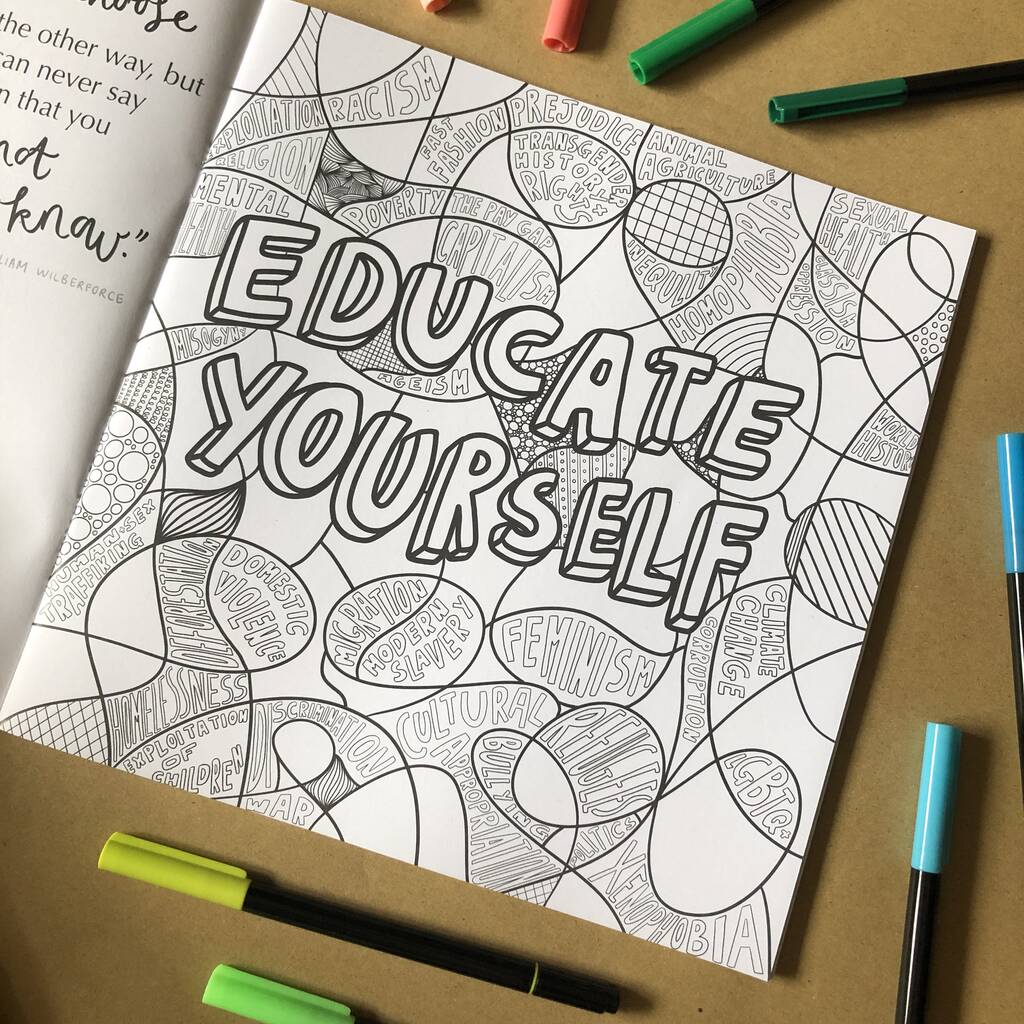 choose
the other way, but
can never say
n that you
not
know."
LIAM WILBERFORCE
EXPLOITATION
RACISM
FAST
FASHION
PREJUDICE
RELIGION
TRANSGENDER
HISTORY
RIGHTS +
ANIMAL
AGRICULTURE
MENTAL
HEALTH
POVERTY
THE PAY GAP
CAPITALISM
INEQUALITY
HOMOPHOBIA
SEXUAL
HEALTH
CLASSISM
OPPRESSION
EDUCATE
YOURSELF
MISOGYNY
AGEISM
WORLD
HISTORY
HUMAN + SEX
TRAFFIKING
DEFORESTATION
DOMESTIC
VIOLENCE
MIGRATION
MODERN
SLAVERY
FEMINISM
CORRUPTION
CLIMATE
CHANGE
HOMELESSNESS
EXPLOITATION
OF
CHILDREN
DISCRIMINATION
WAR
CULTURAL
APPROPRIATION
BULLYING
REFUGEES
POLITICS
LGBTQ+
XENOPHOBIA